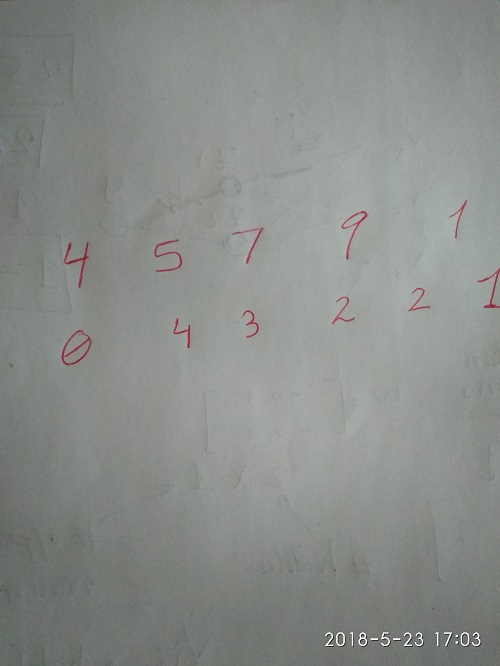 4 5 7 9 1
0 4 3 2 2 1
2018-5-23 17:03